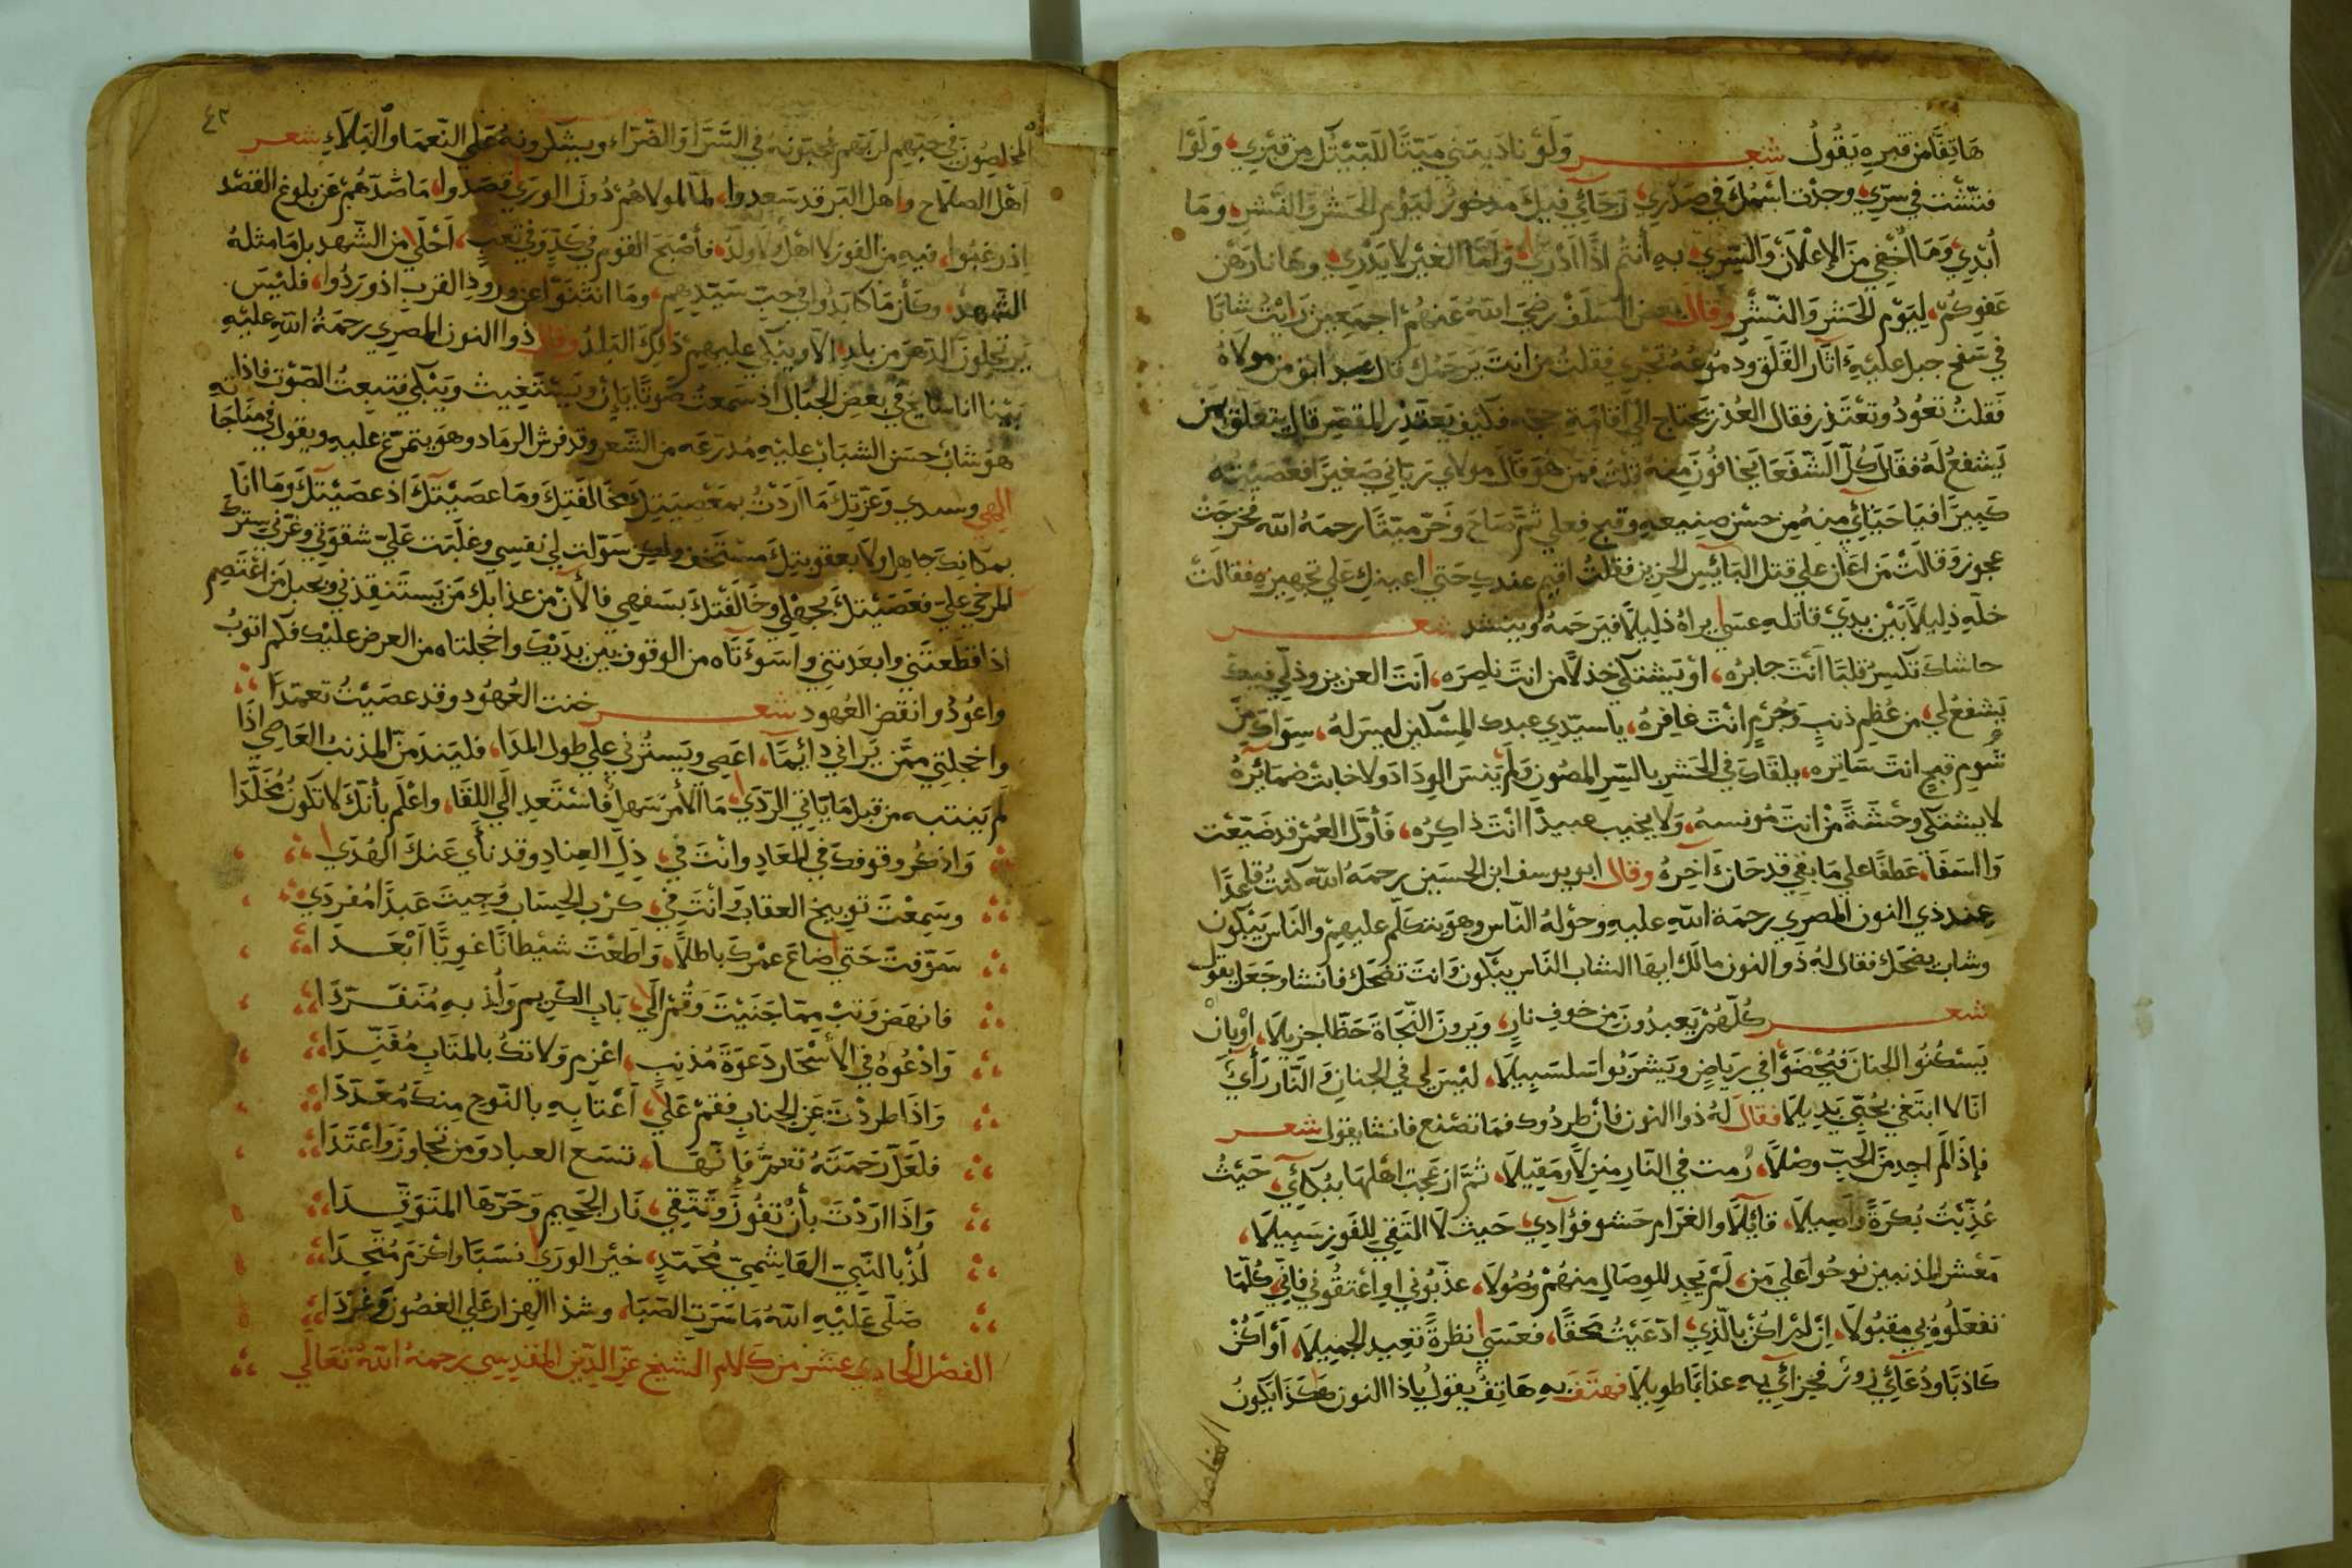 هَاتِفًا من قبره يَقُولُ شعر وَلَوْ ناديتني مَيْتًا للَبَّيْتُكَ من قبري، وَلَوْ
فتّشت في سرّي وجدت اسْمُكَ في صَدري، رَجَائِي فيكَ مدخورٌ ليَوْم الحَشْرِ وَالنَّشرِ، ومَا
أُبْدِي وَمَا أُخْفِي مِنَ الإِعْلَانِ وَالسّرّي، بهِ أَنتُم اذًا أدْري، وَأمّا الغَيْر لا يَدْري، وهَا نا رَهْن
عَفوِكُمْ، ليَوْم الحَشْرِ وَالنَّشْر وَقال بعض السَّلَفْ رضِيَ اللهُ عَنهُمْ اجمَعِين رَايْتُ شابًا
في سَفح جبل عليْهِ آثَار القَلَق ودمُوعُهُ تجْري فقلتُ من انتَ يَرحَمُكَ قال عبد ابق من مولاهُ
فقلتُ تعُودُ وتعْتذر فقال العُذر يَحتاج الى اقامَةِ حجة فكيْفَ يَعتذِر المقصّر قال يتعلق بمن
يَشفعُ لَهُ فقال كلّ الشّفعَا يخافُونَ مِنهُ قلتُ فمَن هوَ قال مولاي رَبَّاني صَغيرًا فعَصَيْتُهُ
كبيرًا فيَا حَيَائِي مِنهُ من حسْن صنيعهِ وقبح فعلي ثمّ صَاحَ وَخَرّ ميّتًا رحمَهُ الله فخرجَتْ
عجوز وَقالَتْ مَن اعَان علي قتل البَائِسِ الحزين فقلتُ اقيم عندكِ حَتى اعينكِ عَلي تجهيزه فقالَتْ
خلّهِ ذليلًا بَيْن يدَيْ قاتله عسَى يراهُ ذليلًا فيَرحَمهُ وينشد شعر
حاشاكَ تكسِرُ قلبًا أنتَ جابرُه، أوْ يَشتكي خذلًا من انتَ ناصِرَه، انتَ العزيز وذلّي فيكَ
يَشفعُ لي، من عُظم ذنبٍ وَجُرْمٍ انْتَ غافِرُه، يا سيّدِي عبدك المِسْكين ليسَ لهُ، سِوَاكَ مِنْ
شُومِ قبحٍ انتَ سَاتِره، يلقاكَ في الحَشرِ بالسّرِ المصُونِ وَلَمْ يَنسَ الوِدَادَ ولا خابتْ ضمَائرهُ
لا يشتكي وحْشَةً مَنْ انتَ مُونسهُ، وَلا يخيب عبيدًا انْتَ ذاكِرُه، فَأوّلَ العُمْر قد ضَيّعْت
وَا اسَفَا، عَطفًا علي مَا بقِي قد حَان آخِرُهُ وقال ابو يوسف ابن الحسَين رحمَهُ الله كنتُ قاعدًا
عِند ذي النون المصري رحمَة اللهِ عليهِ وحوْلهُ النّاس وهوَ يتكلّم عليهم والنَّاس يَبْكون
وشاب يضحَك فقال لهُ ذو النون مالَك ايها الشاب النّاس يبْكون وَانتَ تضحَك فانشا وجَعَل يقول
شعر كُلّهُمْ يَعبدُونَ مِن خَوفِ نارٍ، وَيَرونَ النّجَاةَ حَظًا جزيلَا، أوْ بأن
يَسْكُنُوا الجِنانَ فيُحْضَوْا في ريَاضٍ ويَشرَبُوا سَلسَبيلَا، ليْسَ لي في الجنانِ وَالنّار رَأيٌ
انَا لا ابتَغي بحُبّي بَديلَا فقالَ لهُ ذوا النون فان طردُوك فمَا تصْنع فانشا يقول شعر
فإذَا لَم اجِد مِنَ الحُبّ وصْلًا، رُمت في النّار منزلًا وَمَقيلَا، ثمَّ ازعَجت اهْلهَا ببُكائي، حَيْثُ
عُذّبْتُ بُكرَةً وَاصِيلَا، قائِلًا وَالغرَام حشو فؤادي، حَيث لَا التَقِي للفَوز سَبيلَا،
مَعْشر المذنبين نوحُوا عَلي مَن، لَمْ يَجِد للوِصَالِ منهُمْ وُصُولَا، عذّبُوني او اعْتِقُوني فاني، كُلّمَا
تفعَلُوهُ بي مقبُولَا، إنْ لم اكُنْ بالّذي، ادّعَيْتُ محقًا، فعَسَى نظرَةً تعِيد الجميلَا، أوْ أكُنْ
كَاذبًا ودُعَائِي زورٌ فجزائي بهِ عذابًا طويلَا فهتَفَ بهِ هَاتِفٌ يقول يا ذا النون هَكَذا يَكونُ
المخلصون
٤٢
المخلِصُونَ في حبّهم لرَبّهم يُحبّونهُ في السَّرّا وَالضّرّاء ويشكرونهُ عَلي النّعمَا وَالبَلَاءِ شعر
اهْل الصَلَاح واهل البرّ قد سَعدوا، لمّا لمولاهُمْ دُونَ الوري قصَدُوا، مَا صَدّهُمْ عَن بلوغ القصْد
إذ رغبُوا، فيهِ من الفَوز لا اهْلٌ وَلا ولدُ، فأصْبَحَ القوم في كدٍّ وَفي تعَبٍ، أحْلى من الشّهد بل مَا مثلهُ
الشهدُ، وكأن مَا كابَدُوا في حبّ سَيّدِهِم، ومَا انثنوْا عن ورودِ القرب اذ وَرَدُوا، فليْسَ
يرتحلونَ الدّهرَ من بلدٍ، إلّا ويَبْكي عليهِمْ ذلِكَ البَلدُ وقال ذوا النون المصري رحمَةُ اللهِ عليْهِ
بَيْنا انا سَايح في بعْضِ الجبَال اذ سَمعتُ صَوتًا يَإنّ ويَسْتَغيث ويَبْكي فتبِعتُ الصّوْت فاذا
هوَ شابٌ حسَن الشبَابْ عليْهِ مُدرَعَه من الشّعر وقد فرش الرمَاد وهوَ يتمَرّغ عليهِ ويقول في مناجَاتهِ
الهي وسيدي وَعزّتكَ مَا ارَدْتُ بمَعْصيَتِكَ مخَالَفَتِكَ وَمَا عصَيْتكَ اذ عصَيْتكَ وَمَا انَا
بمكانِكَ جاهِل ولَا بعقوبتِكَ مستخف ولكِن سَوّلَت لي نفسِي وغلَبت عَليّ شقوَتي وغرّني سِترُكَ
المرخي عليّ فعَصَيْتكَ بجهْلي وخَالفْتكَ بسَفهي فالْآنْ مِن عذَابك مَن يَستنقِذني وبحبل مَن اعْتصِم
اذا قطَعتَني وابعَدتني واسَوْءَتَاه من الوقوف بين يدَيْك واخجلتاه من العرض عليْك فكم اتوبُ
واعُودُ وانقض العُهود شعر خنت العُهُود وقد عصَيْتُ تعمّدًا
واخجلتِي ممَّن يَرَاني دَائِمًا، اعَصي ويَستُرُني عَلي طول المدَا، فليَندَمَنّ المذنبُ العَاصِي اذَا
لَم يَنتبه من قبل مَا يَأتِي الرّدَى، مَا الأمر سَهلٌ فاسْتَعِد الَى اللقَا، واعْلَم بأنّكَ لا تكونُ مُخَلّدَا
وَاذكر وقوفكَ في المَعَادِ وانْتَ في، ذِلِ العِنادِ وقد نأى عَنكَ الهُدَى
وسَمِعْتَ توبيخ العقابِ وَانْتَ في، كرْب الحِسَاب وَجيتَ عَبدًا مُفردَي
سَوّفتَ حَتى ضاعَ عمْركَ باطلًا، وَاطَعْتَ شيْطانًا غويًّا أبْعَدَا
فانهَض وَتبْ ممّا جَنَيْتَ وَقُمْ الَى، بَابِ الكَريم وَلُذ بهِ مُتَفَرّدَا
وَادْعُوهُ في الأسْحَار دَعوَةَ مُذنِبٍ، اعْزم وَلا تكُ بالمتَابِ مُفَنِّدَا
وَاذَا طردْتَ عَنِ الجنابِ فقمْ عَلى، اَعْتابِهِ بالنّوح مِنكَ مُعَدّدَا
فلَعَلّ رَحمَتَهُ تعمّ فإنّهَا، تسَع العبادَ وَمَن تجاوَزَ وَاعْتَدَا
وَاذَا ارَدْتَ بأنْ تفُوزَ وَتتّقي، نَار الجَحِيم وَحَرّهَا المتَوَقِّدَا
لُذْ بالنّبِيّ الهَاشِميّ مُحَمّدٍ، خيْر الورَى نسَبًا وَاكْرَم مُحْتِدَا
صَلّى عَليْهِ اللهُ مَا سَرَتِ الصَبَا، وشذا الهزار عَلي الغصُون وَغَرّدَا
الفصْل الحادِي عشَر من كَلام الشيخ عزّ الدّين المقدسِي رحمهُ اللهُ تعَالي